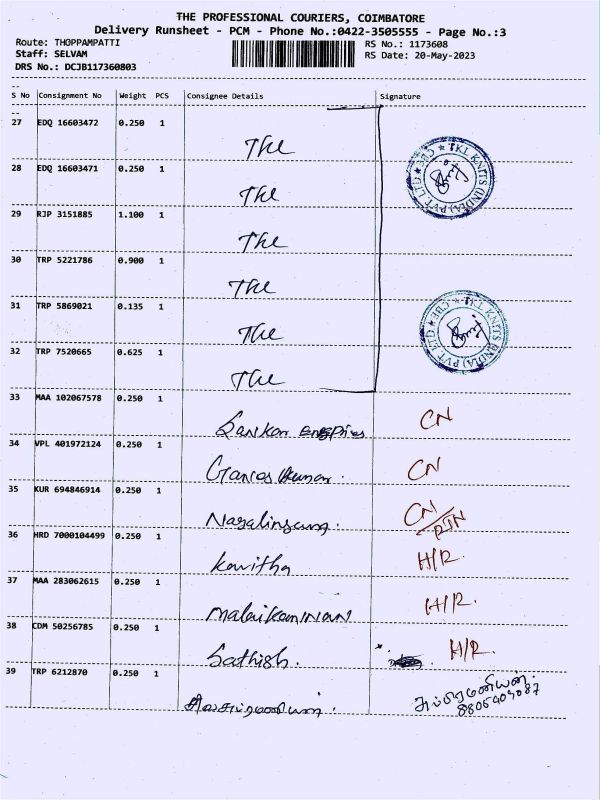 THE PROFESSIONAL COURIERS, COIMBATORE
Delivery Runsheet - PCM - Phone No.:0422-3505555 - Page No.:3
Route: THOPPAMPATTI
RS No.: 1173608
Staff: SELVAM
RS Date: 20-May-2023
DRS No.: DCJB117360803
S No Consignment No Weight PCS Consignee Details Signature
27 EDQ 16603472 0.250 1
The
28 EDQ 16603471 0.250 1
The
TKL KNITS (INDIA) PVT LTD ★ CBE ★
29 RJP 3151885 1.100 1
The
30 TRP 5221786 0.900 1
The
31 TRP 5869021 0.135 1
The
TKL KNITS (INDIA) PVT LTD ★ CBE ★
32 TRP 7520665 0.625 1
The
33 MAA 102067578 0.250 1
Sankar CN
34 VPL 401972124 0.250 1
CN
35 KUR 694846914 0.250 1
Nagalingam. CN/RTN
36 HRD 7000104499 0.250 1
Kavitha H/R.
37 MAA 283062615 0.250 1
H/R.
38 CDM 50256785 0.250 1
Sathish. H/R.
39 TRP 6212870 0.250 1
சிவசுப்ரமணியன். சுப்பிரமணியன்.